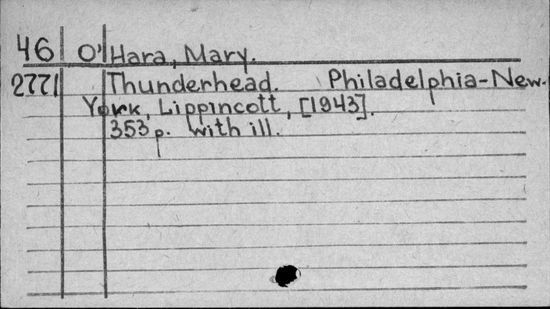 46 O'Hara, Mary.
2771 Thunderhead. Philadelphia-New-
York, Lippincott, [1943].
353 p. with ill.